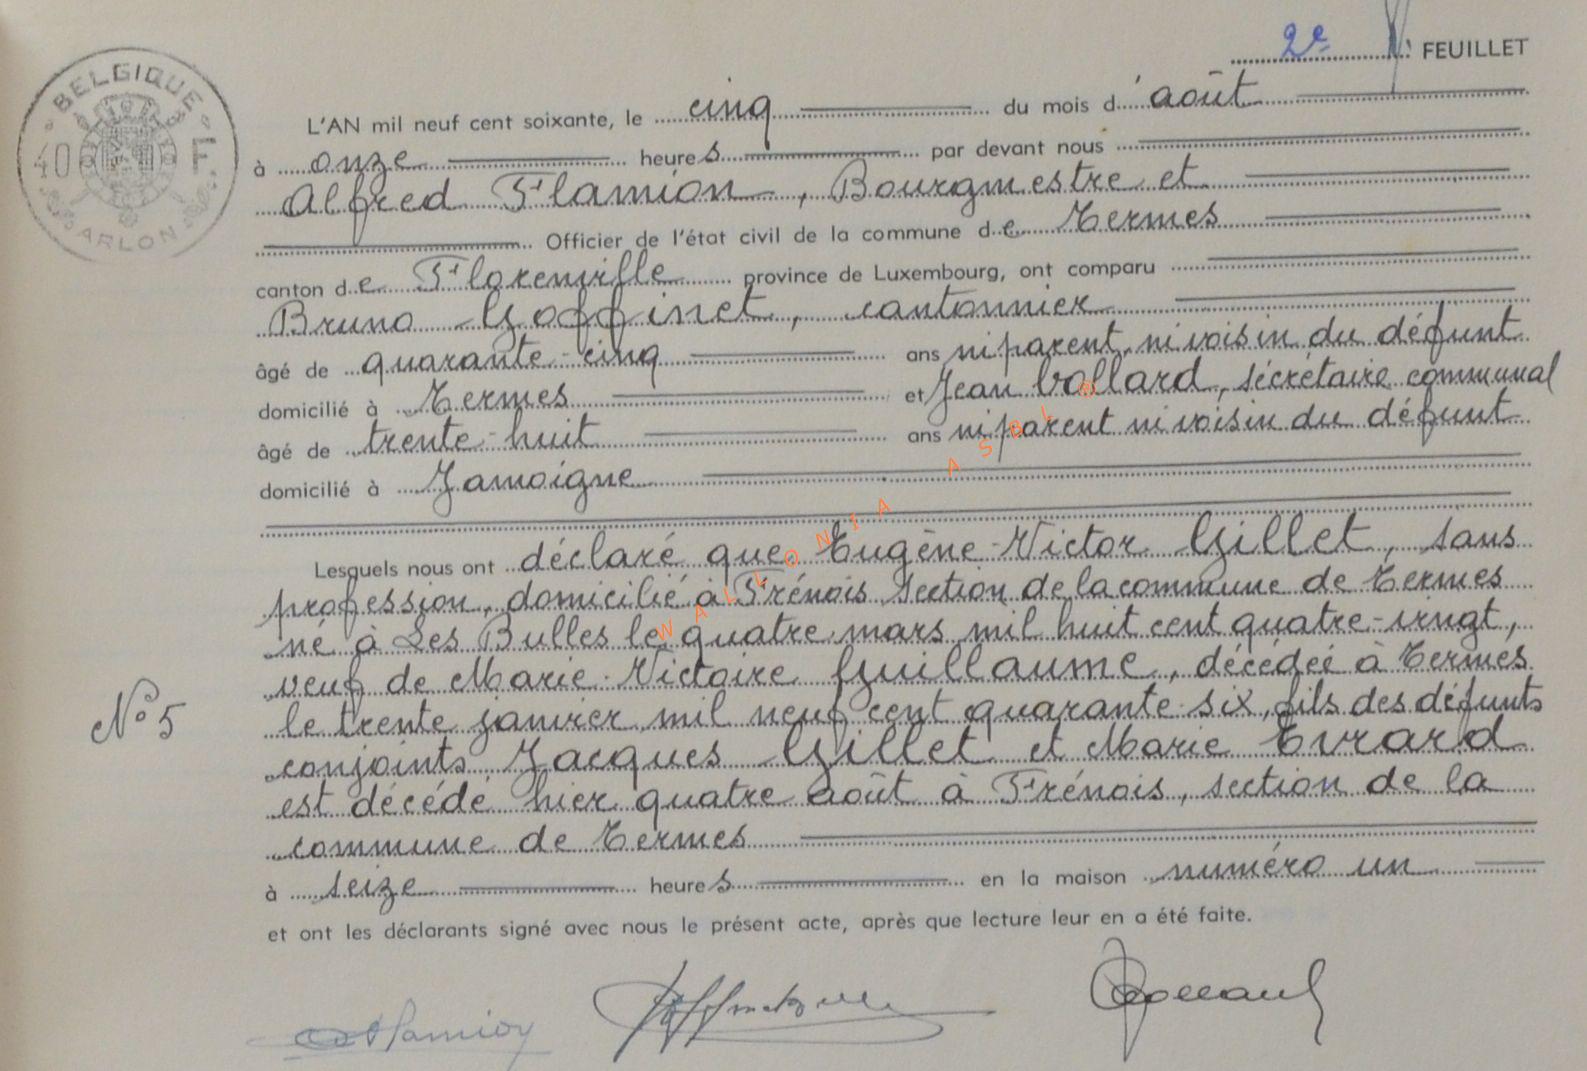 2e FEUILLET
BELGIQUE
40 F.
ARLON
L'AN mil neuf cent soixante, le cinq du mois d'août
à onze heures par devant nous
Alfred Flamion, Bourgmestre et
Officier de l'état civil de la commune de Termes
canton de Florenville province de Luxembourg, ont comparu
Bruno Goffinet, cantonnier
âgé de quarante-cinq ans ni parent, ni voisin du défunt
domicilié à Termes et Jean Collard, sécrétaire communal
âgé de trente-huit ans ni parent ni voisin du défunt
domicilié à Jamoigne
Lesquels nous ont déclaré que Eugène-Victor Gillet, sans
profession, domicilié à Frénois section de la commune de Termes
né à Les Bulles le quatre mars mil huit cent quatre-vingt,
veuf de Marie-Victoire Guillaume, décédée à Termes
le trente janvier mil neuf cent quarante-six, fils des défunts
N° 5
conjoints Jacques Gillet et Marie Evrard
est décédé hier quatre août à Frénois, section de la
commune de Termes
à seize heures en la maison numéro un
et ont les déclarants signé avec nous le présent acte, après que lecture leur en a été faite.
Flamion
WALLONIA ASBL ®